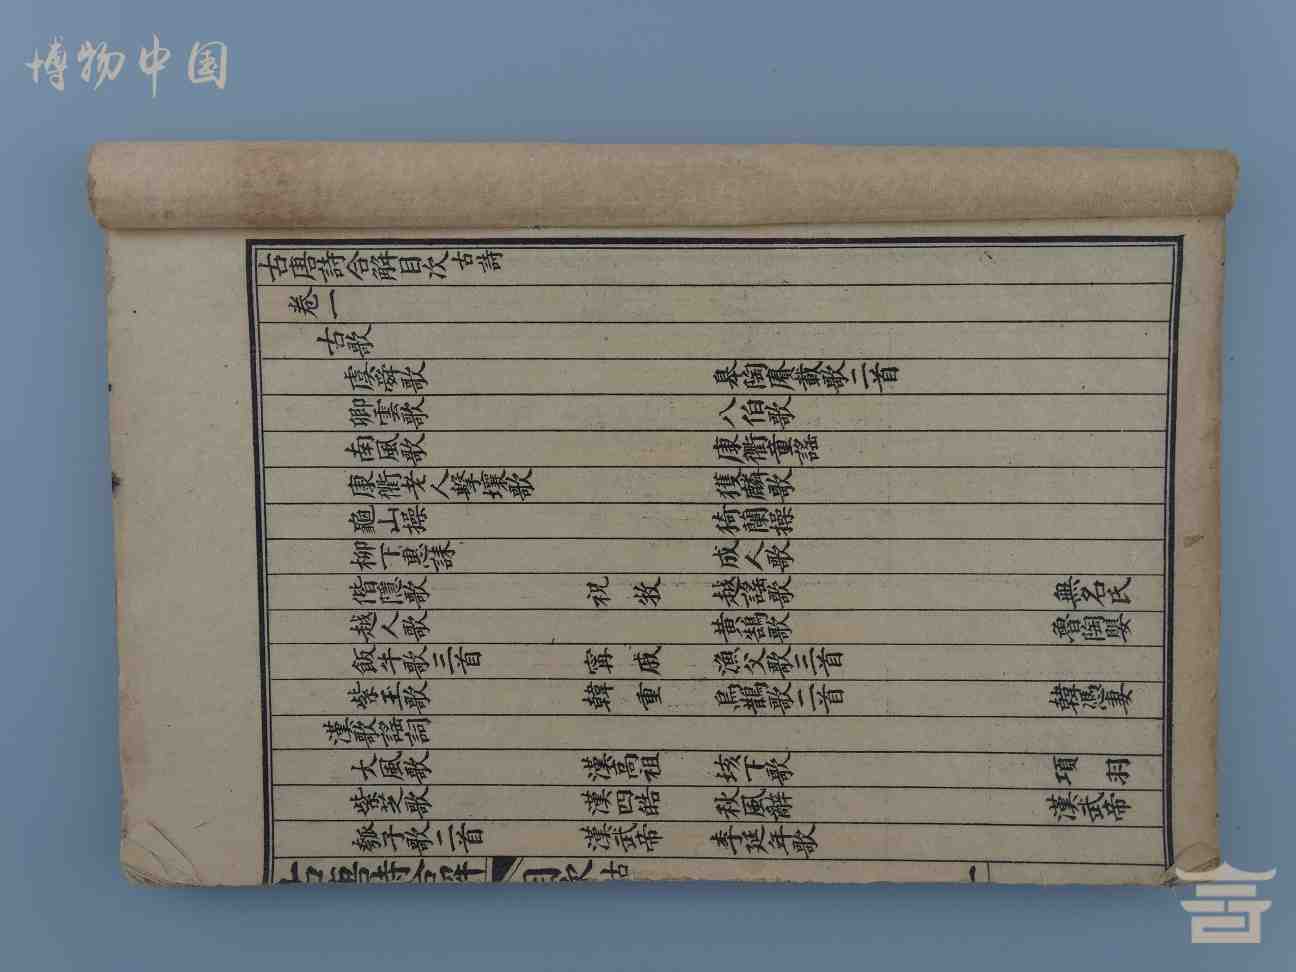 博物中国
古唐詩合解目次 古詩
卷一
古歌
虞舜歌 皋陶賡載歌二首
卿雲歌 八伯歌
南風歌 康衢童謠
康衢老人擊壤歌 獲麟歌
龜山操 猗蘭操
柳下惠誄 成人歌
偕隱歌 祝牧 越謠歌 無名氏
越人歌 黃鵠歌 魯陶嬰
飯牛歌三首 甯戚 漁父歌三首
紫玉歌 韓重 烏鵲歌二首 韓馮妻
漢歌謠詞
大風歌 漢高祖 垓下歌 項羽
紫芝歌 漢四皓 秋風辭 漢武帝
瓠子歌二首 漢武帝 李延年歌
古唐詩合解 目次 古 一